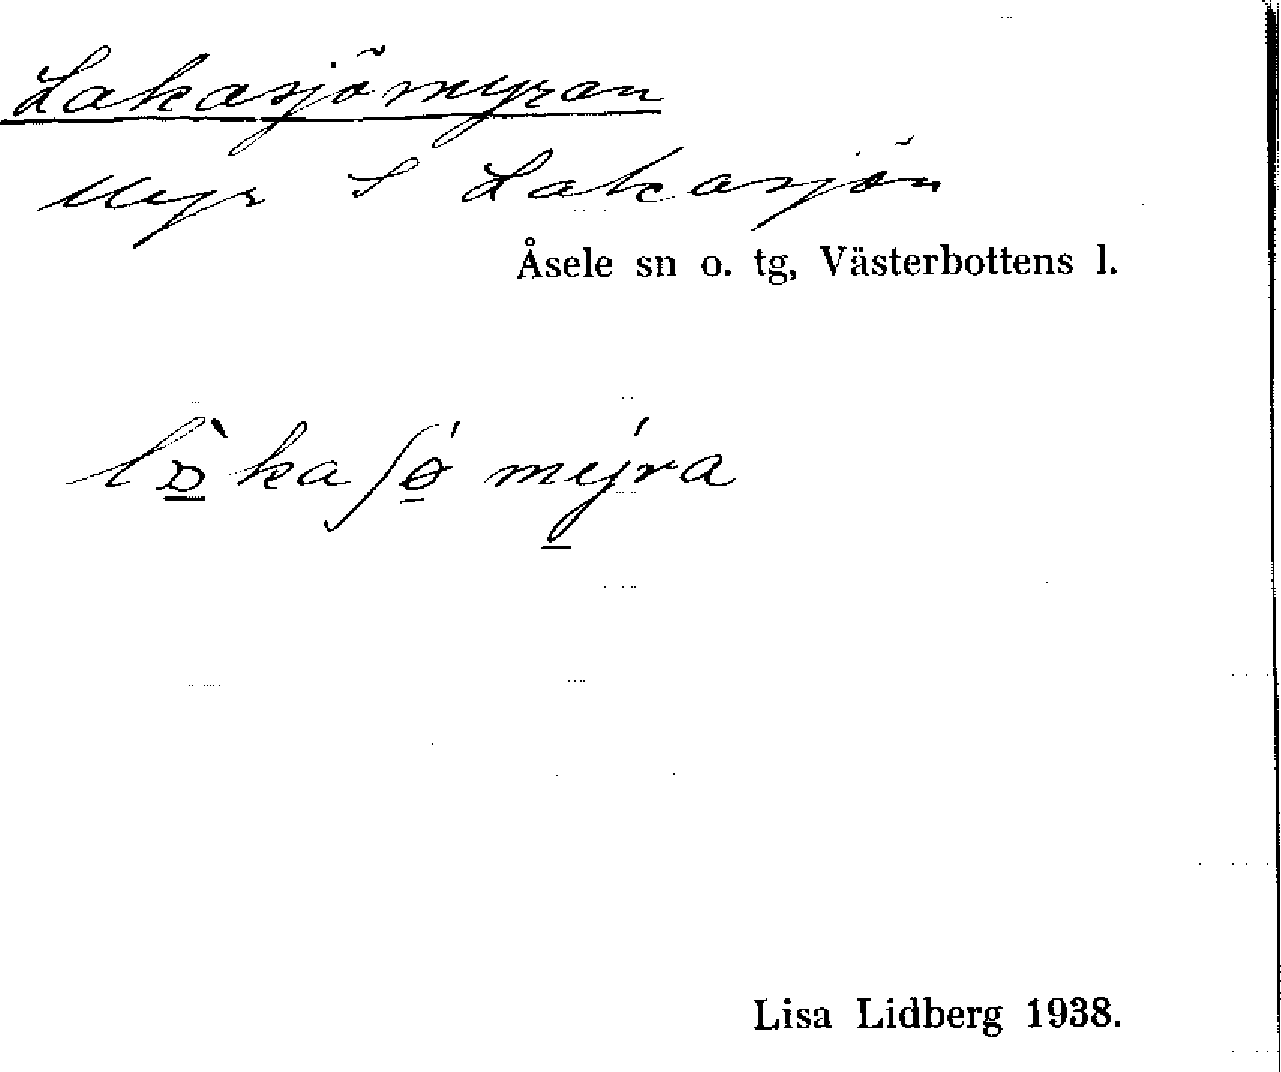 Lakasjömyran
Myr S Lakasjön
Åsele sn o. tg, Västerbottens l.
lɒ̀kaʃø´my´ra
Lisa Lidberg 1938.